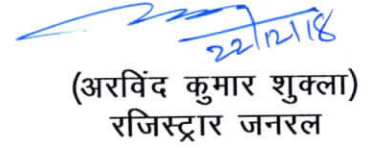 22/12/18
(अरविंद कुमार शुक्ला)
रजिस्ट्रार जनरल